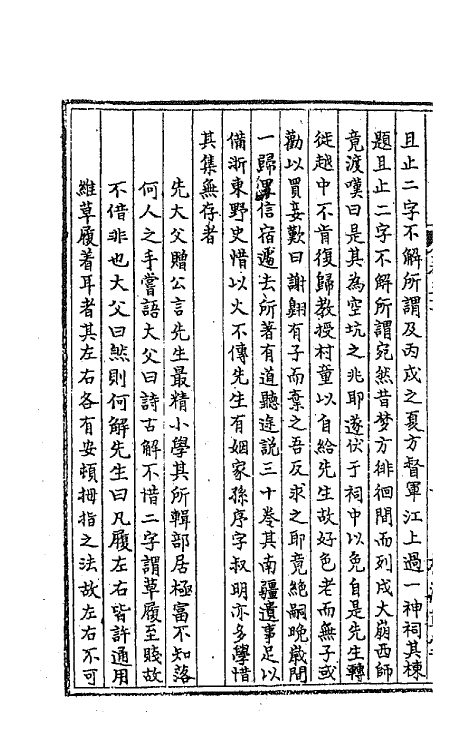 且止二字不解所謂及丙戌之夏方督軍江上過一神祠其棟
題且止二字不解所謂宛然昔梦方徘徊間而列戍大崩西師
竟渡嘆曰是其為空坑之兆耶遂伏于祠中以免自是先生轉
徙越中不肯復歸教授村童以自給先生故好色老而無子或
勸以買妾歎曰謝翺有子而棄之吾反求之耶竟絕嗣晚歲間
一歸信宿遁去所著有道聽迻說三十卷其南疆遺事足以
備浙東野史惜以火不傳先生有姻家孫序字叔明亦多學惜
其集無存者
先大父贈公言先生最精小學其所輯部居極富不知落
何人之手嘗語大父曰詩古解不惜二字謂草履至賤故
不借非也大父曰然則何解先生曰凡履左右皆許通用
維草履著耳者其左右各有安頓拇指之法故左右不可